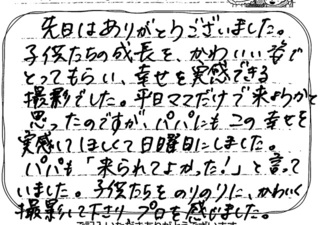 先日はありがとうございました。
子供たちの成長を、かわいい姿で
とってもらい、幸せを実感できる
撮影でした。平日ママだけで来ようかと
思ったのですが、パパにもこの幸せを
実感してほしくて日曜日にしました。
パパも「来られてよかった!」と言って
いました。子供たちをのりのりに、かわいく
撮影して下さりプロを感じました。